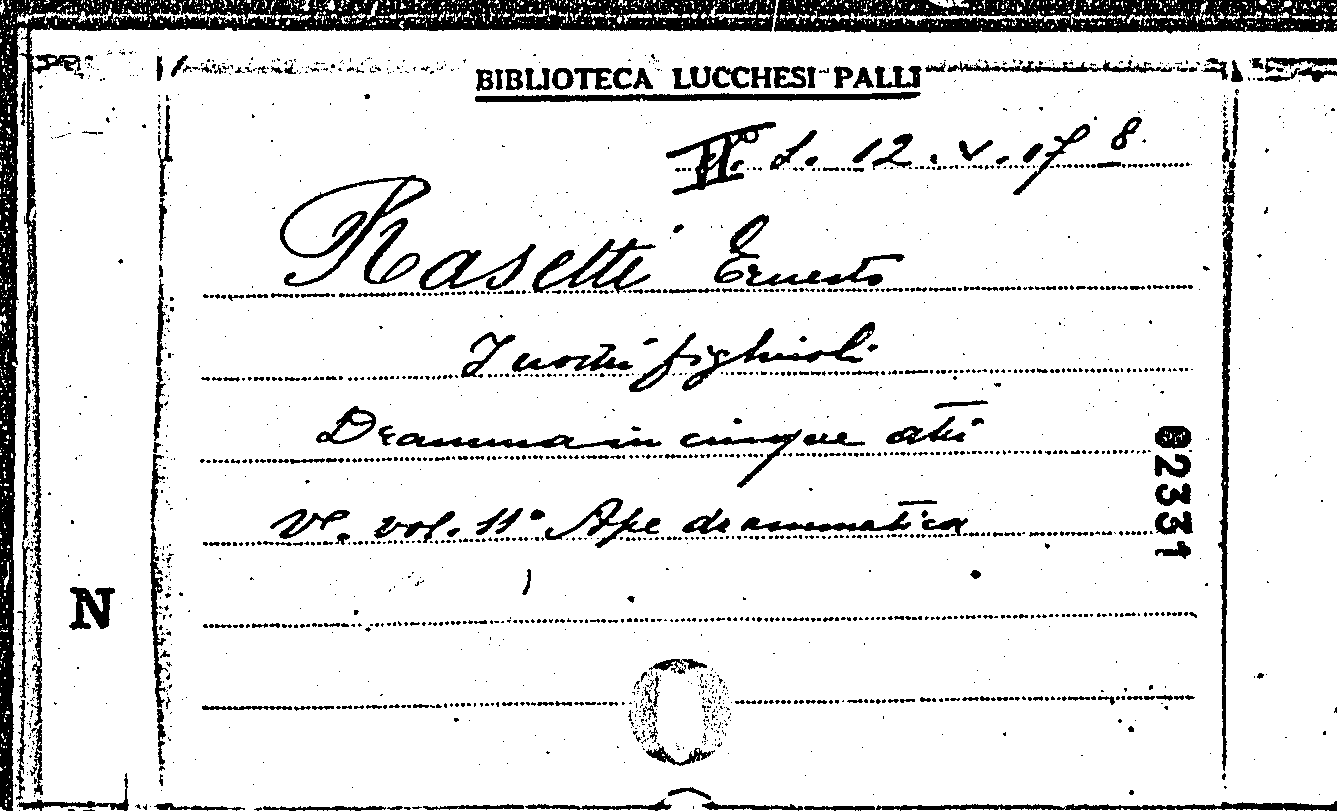 BIBLIOTECA LUCCHESI PALLI
II. L. 12. V. 17 8
Rasetti Ernesto
I nostri figliuoli
Dramma in cinque atti
ve. vol. 11° Ape drammatica
02331
N